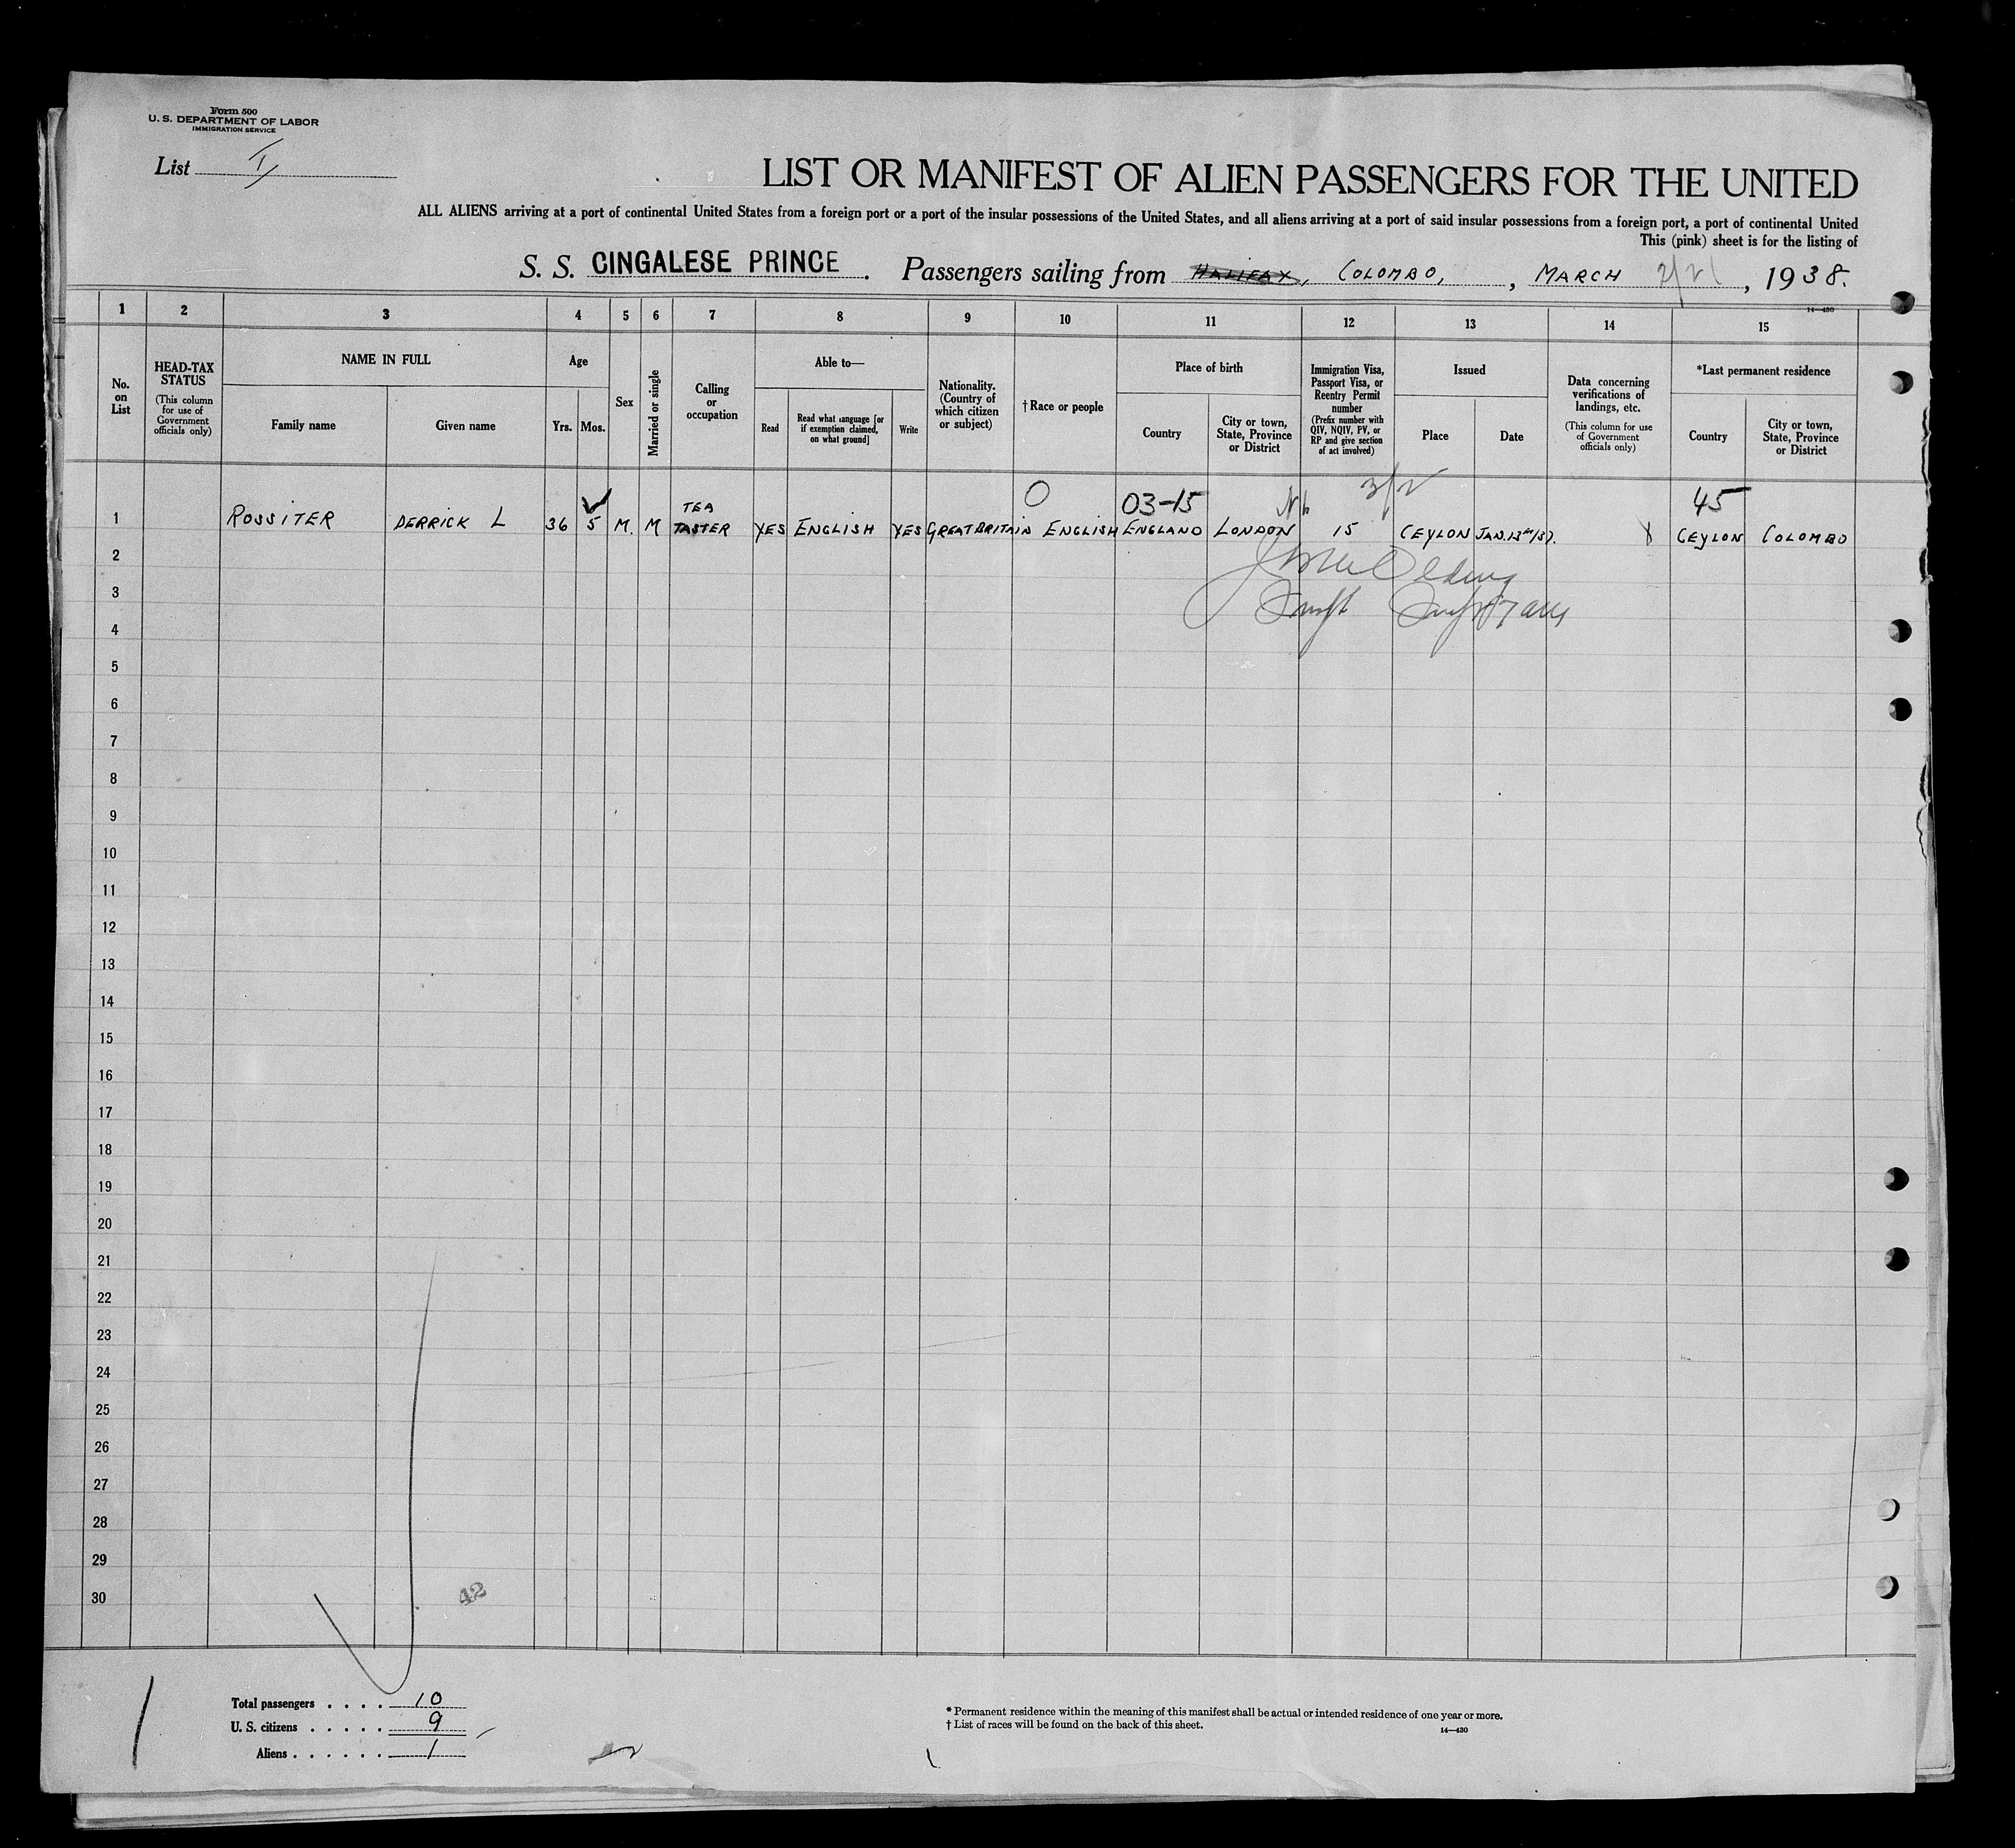 Form 500
U. S. DEPARTMENT OF LABOR
IMMIGRATION SERVICE
List I
LIST OR MANIFEST OF ALIEN PASSENGERS FOR THE UNITED
ALL ALIENS arriving at a port of continental United States from a foreign port or a port of the insular possessions of the United States, and all aliens arriving at a port of said insular possessions from a foreign port, a port of continental United
This (pink) sheet is for the listing of
S. S. CINGALESE PRINCE . Passengers sailing from HALIFAX, COLOMBO, , MARCH , 1938.
14—430
1 2 3 4 5 6 7 8 9 10 11 12 13 14 15
No. on List
HEAD-TAX STATUS (This column for use of Government officials only)
NAME IN FULL
Family name
Given name
Age
Yrs. Mos.
Sex
Married or single
Calling or occupation
Able to—
Read
Read what language [or if exemption claimed, on what ground]
Write
Nationality. (Country of which citizen or subject)
†Race or people
Place of birth
Country
City or town, State, Province or District
Immigration Visa, Passport Visa, or Reentry Permit number (Prefix number with QIV, NQIV, PV, or RP and give section of act involved)
Issued
Place
Date
Data concerning verifications of landings, etc. (This column for use of Government officials only)
*Last permanent residence
Country
City or town, State, Province or District
0 03-15 3/2 45
1 ROSSITER DERRICK L 36 5 M. M TEA TASTER YES ENGLISH YES GREAT BRITAIN ENGLISH ENGLAND LONDON 15 CEYLON JAN. 13th/37. CEYLON COLOMBO
2
3
4
5
6
7
8
9
10
11
12
13
14
15
16
17
18
19
20
21
22
23
24
25
26
27
28
29
30
42
Total passengers . . . . 10
U. S. citizens . . . . . 9
Aliens . . . . . . 1
* Permanent residence within the meaning of this manifest shall be actual or intended residence of one year or more.
† List of races will be found on the back of this sheet.
14—430